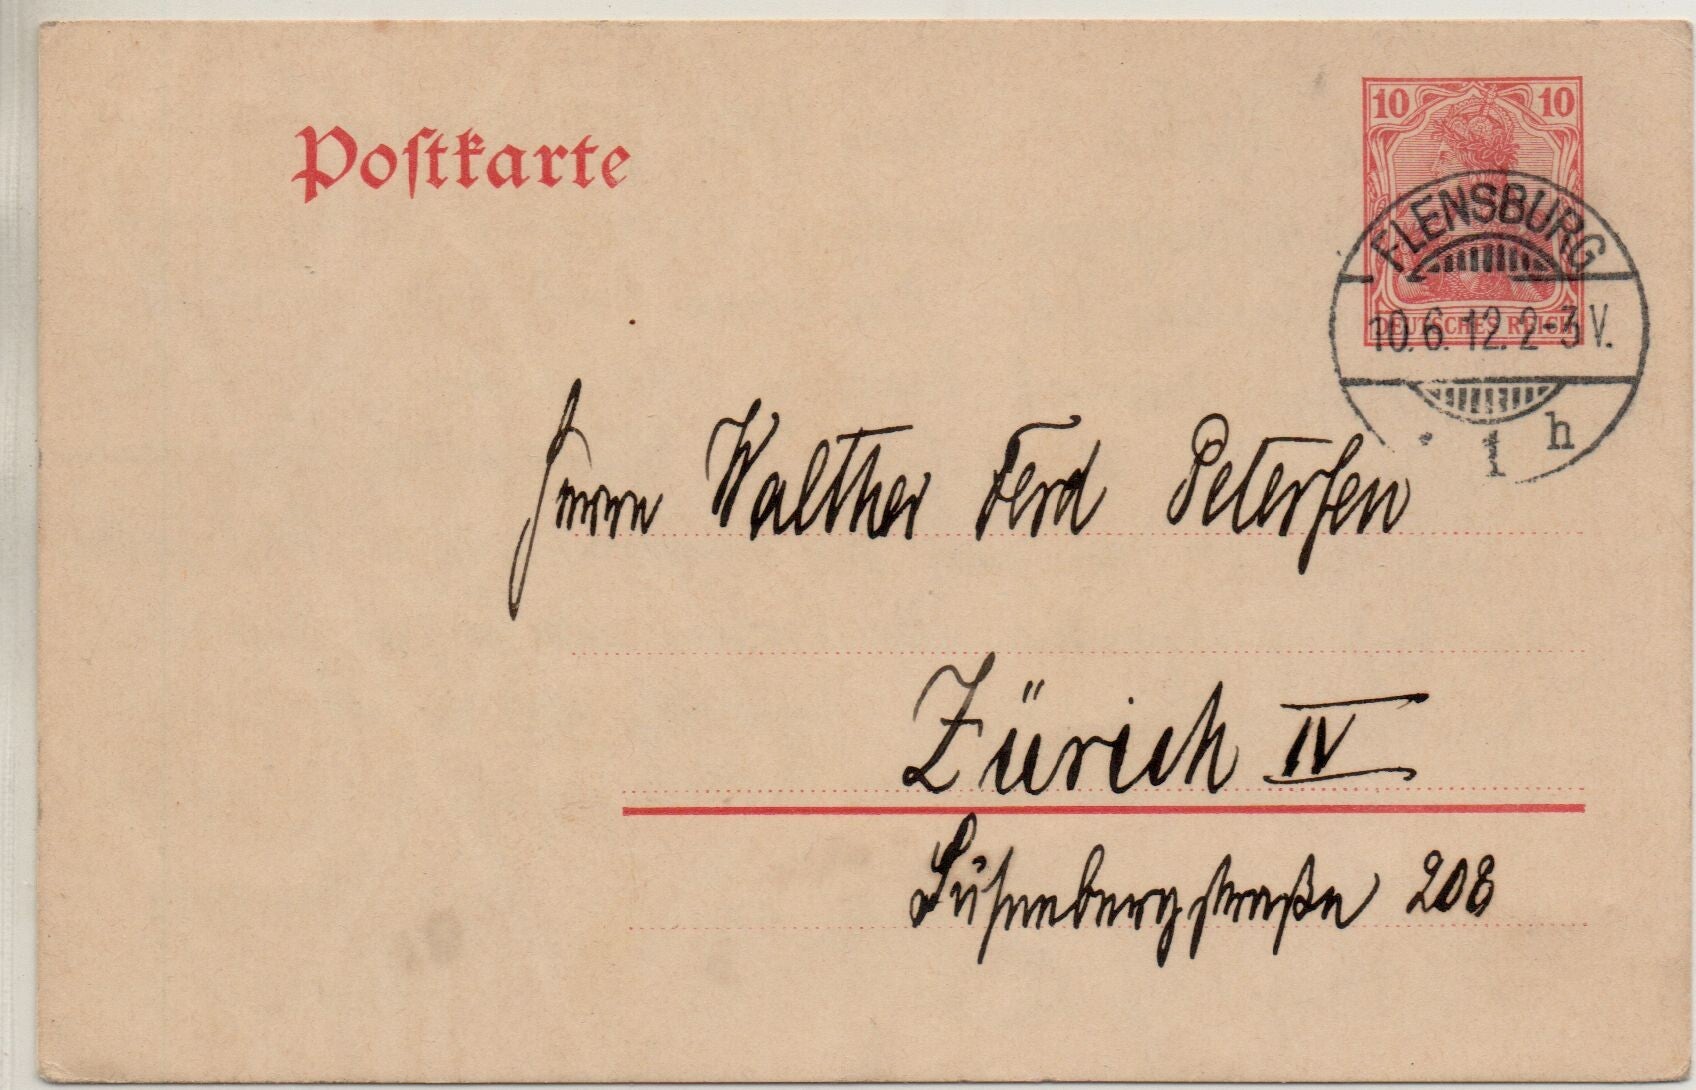 Postkarte
10 10
DEUTSCHES REICH
FLENSBURG
10.6.12.2-3 V.
1 h
Herrn Walther Ferd Petersen
Zürich IV
208